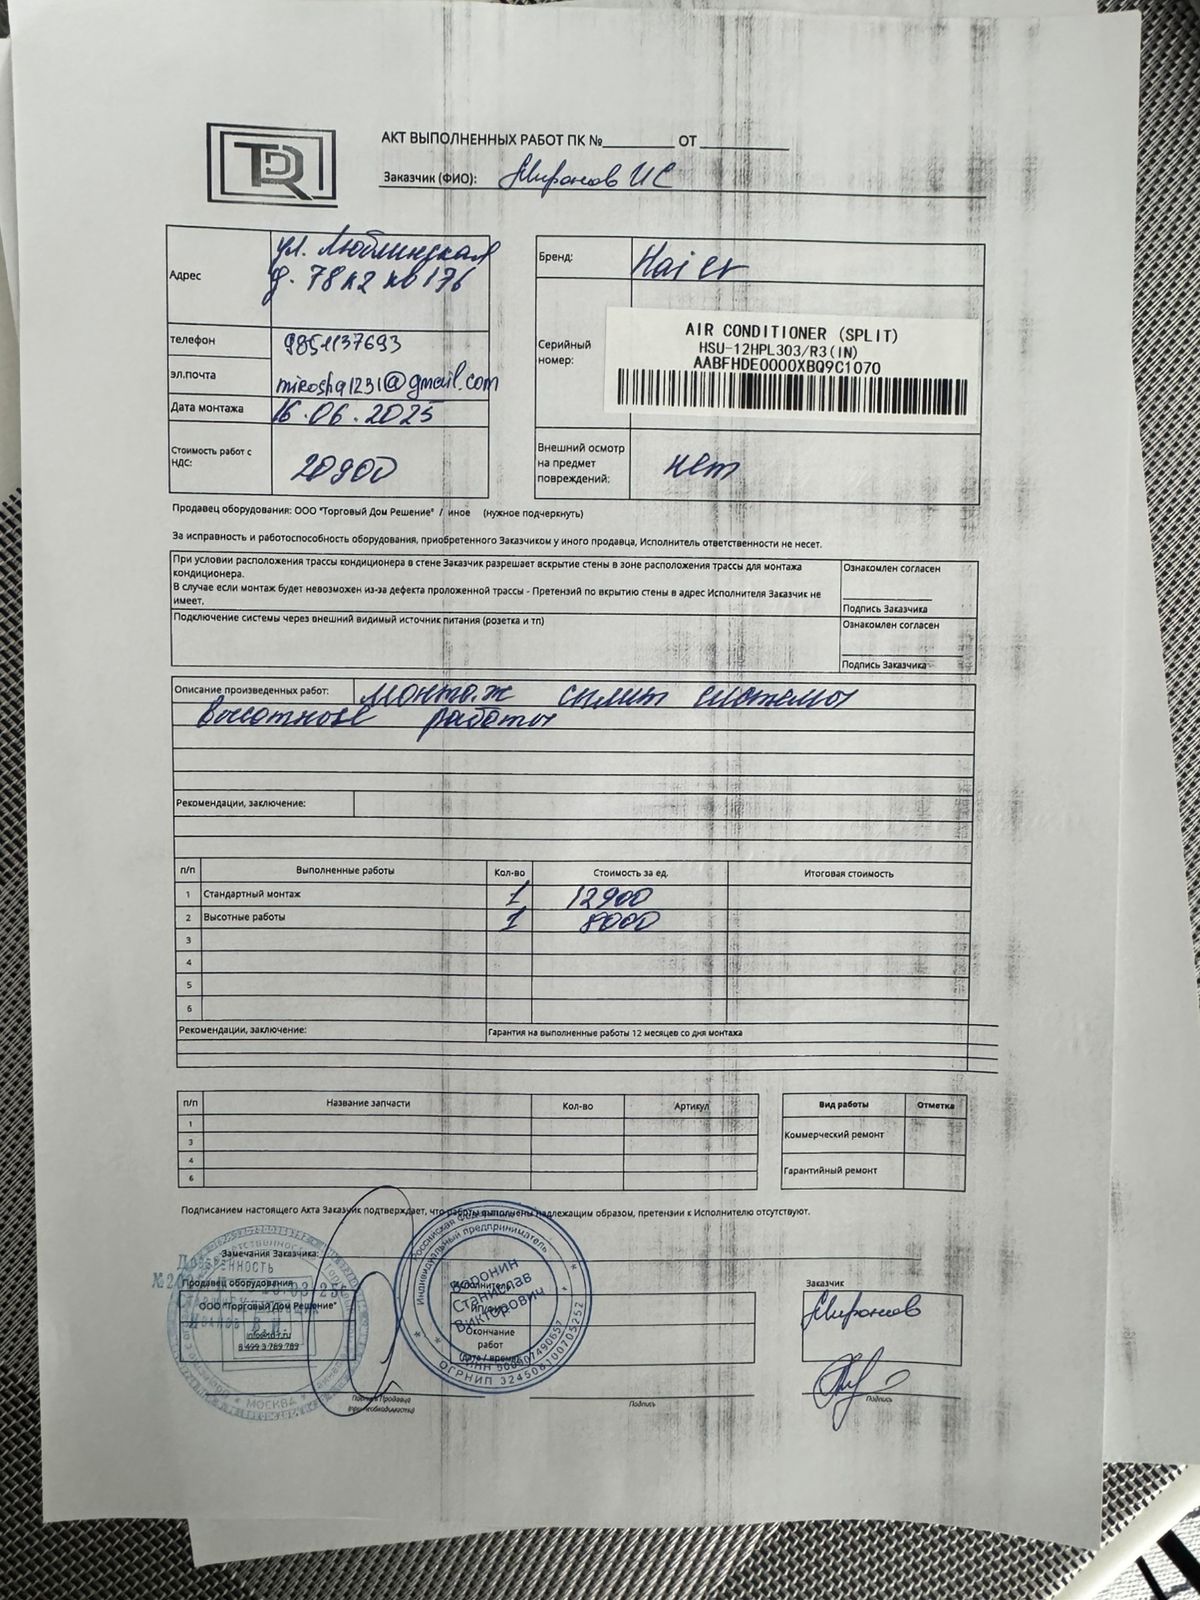 TDR
АКТ ВЫПОЛНЕННЫХ РАБОТ ПК №________ ОТ ________
Заказчик (ФИО): Миронов ИС
Адрес ул. Люблинская
д. 78 к2 кв 176
телефон 9851137693
эл.почта mirosha1231@gmail.com
Дата монтажа 16.06.2025
Стоимость работ с НДС: 20900
Бренд: Haier
Серийный номер:
AIR CONDITIONER (SPLIT)
HSU-12HPL303/R3(IN)
AABFHDE0000XBQ9C1070
Внешний осмотр на предмет повреждений: нет
Продавец оборудования: ООО "Торговый Дом Решение" / иное (нужное подчеркнуть)
За исправность и работоспособность оборудования, приобретенного Заказчиком у иного продавца, Исполнитель ответственности не несет.
При условии расположения трассы кондиционера в стене Заказчик разрешает вскрытие стены в зоне расположения трассы для монтажа
кондиционера.
В случае если монтаж будет невозможен из-за дефекта проложенной трассы - Претензий по вкрытию стены в адрес Исполнителя Заказчик не
имеет.
Ознакомлен согласен
Подпись Заказчика
Подключение системы через внешний видимый источник питания (розетка и тп)
Ознакомлен согласен
Подпись Заказчика
Описание произведенных работ: монтаж сплит системы
высотные работы
Рекомендации, заключение:
п/п Выполненные работы Кол-во Стоимость за ед. Итоговая стоимость
1 Стандартный монтаж 1 12900
2 Высотные работы 1 8000
3
4
5
6
Рекомендации, заключение: Гарантия на выполненные работы 12 месяцев со дня монтажа
п/п Название запчасти Кол-во Артикул
1
3
4
6
Вид работы Отметка
Коммерческий ремонт
Гарантийный ремонт
Подписанием настоящего Акта Заказчик подтверждает, что работы выполнены надлежащим образом, претензии к Исполнителю отсутствуют.
Замечания Заказчика:
Доверенность
Продавец оборудования
ООО "Торговый Дом Решение"
info@td-r.ru
8 499 3 789 789
МОСКВА
Подпись Продавца
(при необходимости)
Индивидуальный предприниматель
Воронин
Станислав
Викторович
ОГРНИП 324508100705252
Окончание
работ
дата / время
Подпись
Заказчик
Миронов
Подпись